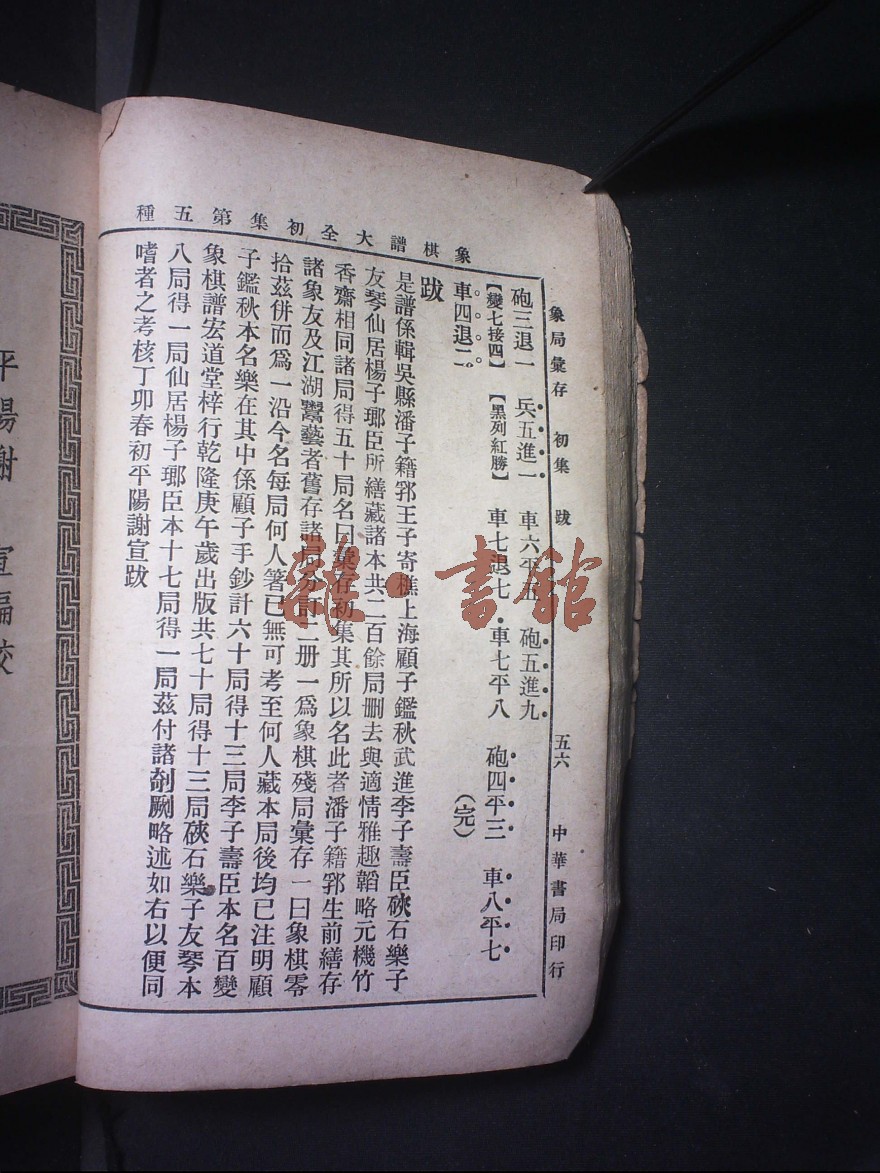 象棋譜大全初集第五種
象局彙存 初集 跋 五六 中華書局印行
砲三退一 兵五進一 車六平五 砲五進九
【變七接四】 【黑列紅勝】 車七退七 車七平八 砲四平三 車八平七
車四退二 (完)
跋
是譜係輯吳縣潘子籍郛王子寄樵上海顧子鑑秋武進李子壽臣硤石樂子
友琴仙居楊子瑯臣所繕藏諸本共二百餘局删去與適情雅趣韜略元機竹
香齋相同諸局得五十局名曰彙存初集其所以名此者潘子籍郛生前繕存
諸象友及江湖鬻藝者舊存諸局分訂二册一爲象棋殘局彙存一曰象棋零
拾茲併而爲一沿今名每局何人箸已無可考至何人藏本局後均已注明顧
子鑑秋本名樂在其中係顧子手鈔計六十局得十三局李子壽臣本名百變
象棋譜宏道堂梓行乾隆庚午歲出版共七十局得十三局硤石樂子友琴本
八局得一局仙居楊子瑯臣本十七局得一局茲付諸剞劂略述如右以便同
嗜者之考核丁卯春初平陽謝宣跋
平陽謝 宣編校
雜·書館